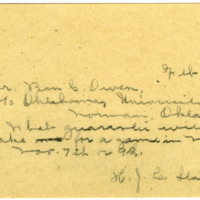 Feb
Mr. Ben G. Owen,
% Oklahoma Universi
Norman, Okla
What guarantee will
take for a game in
Nov. 7th or
H. J. L.